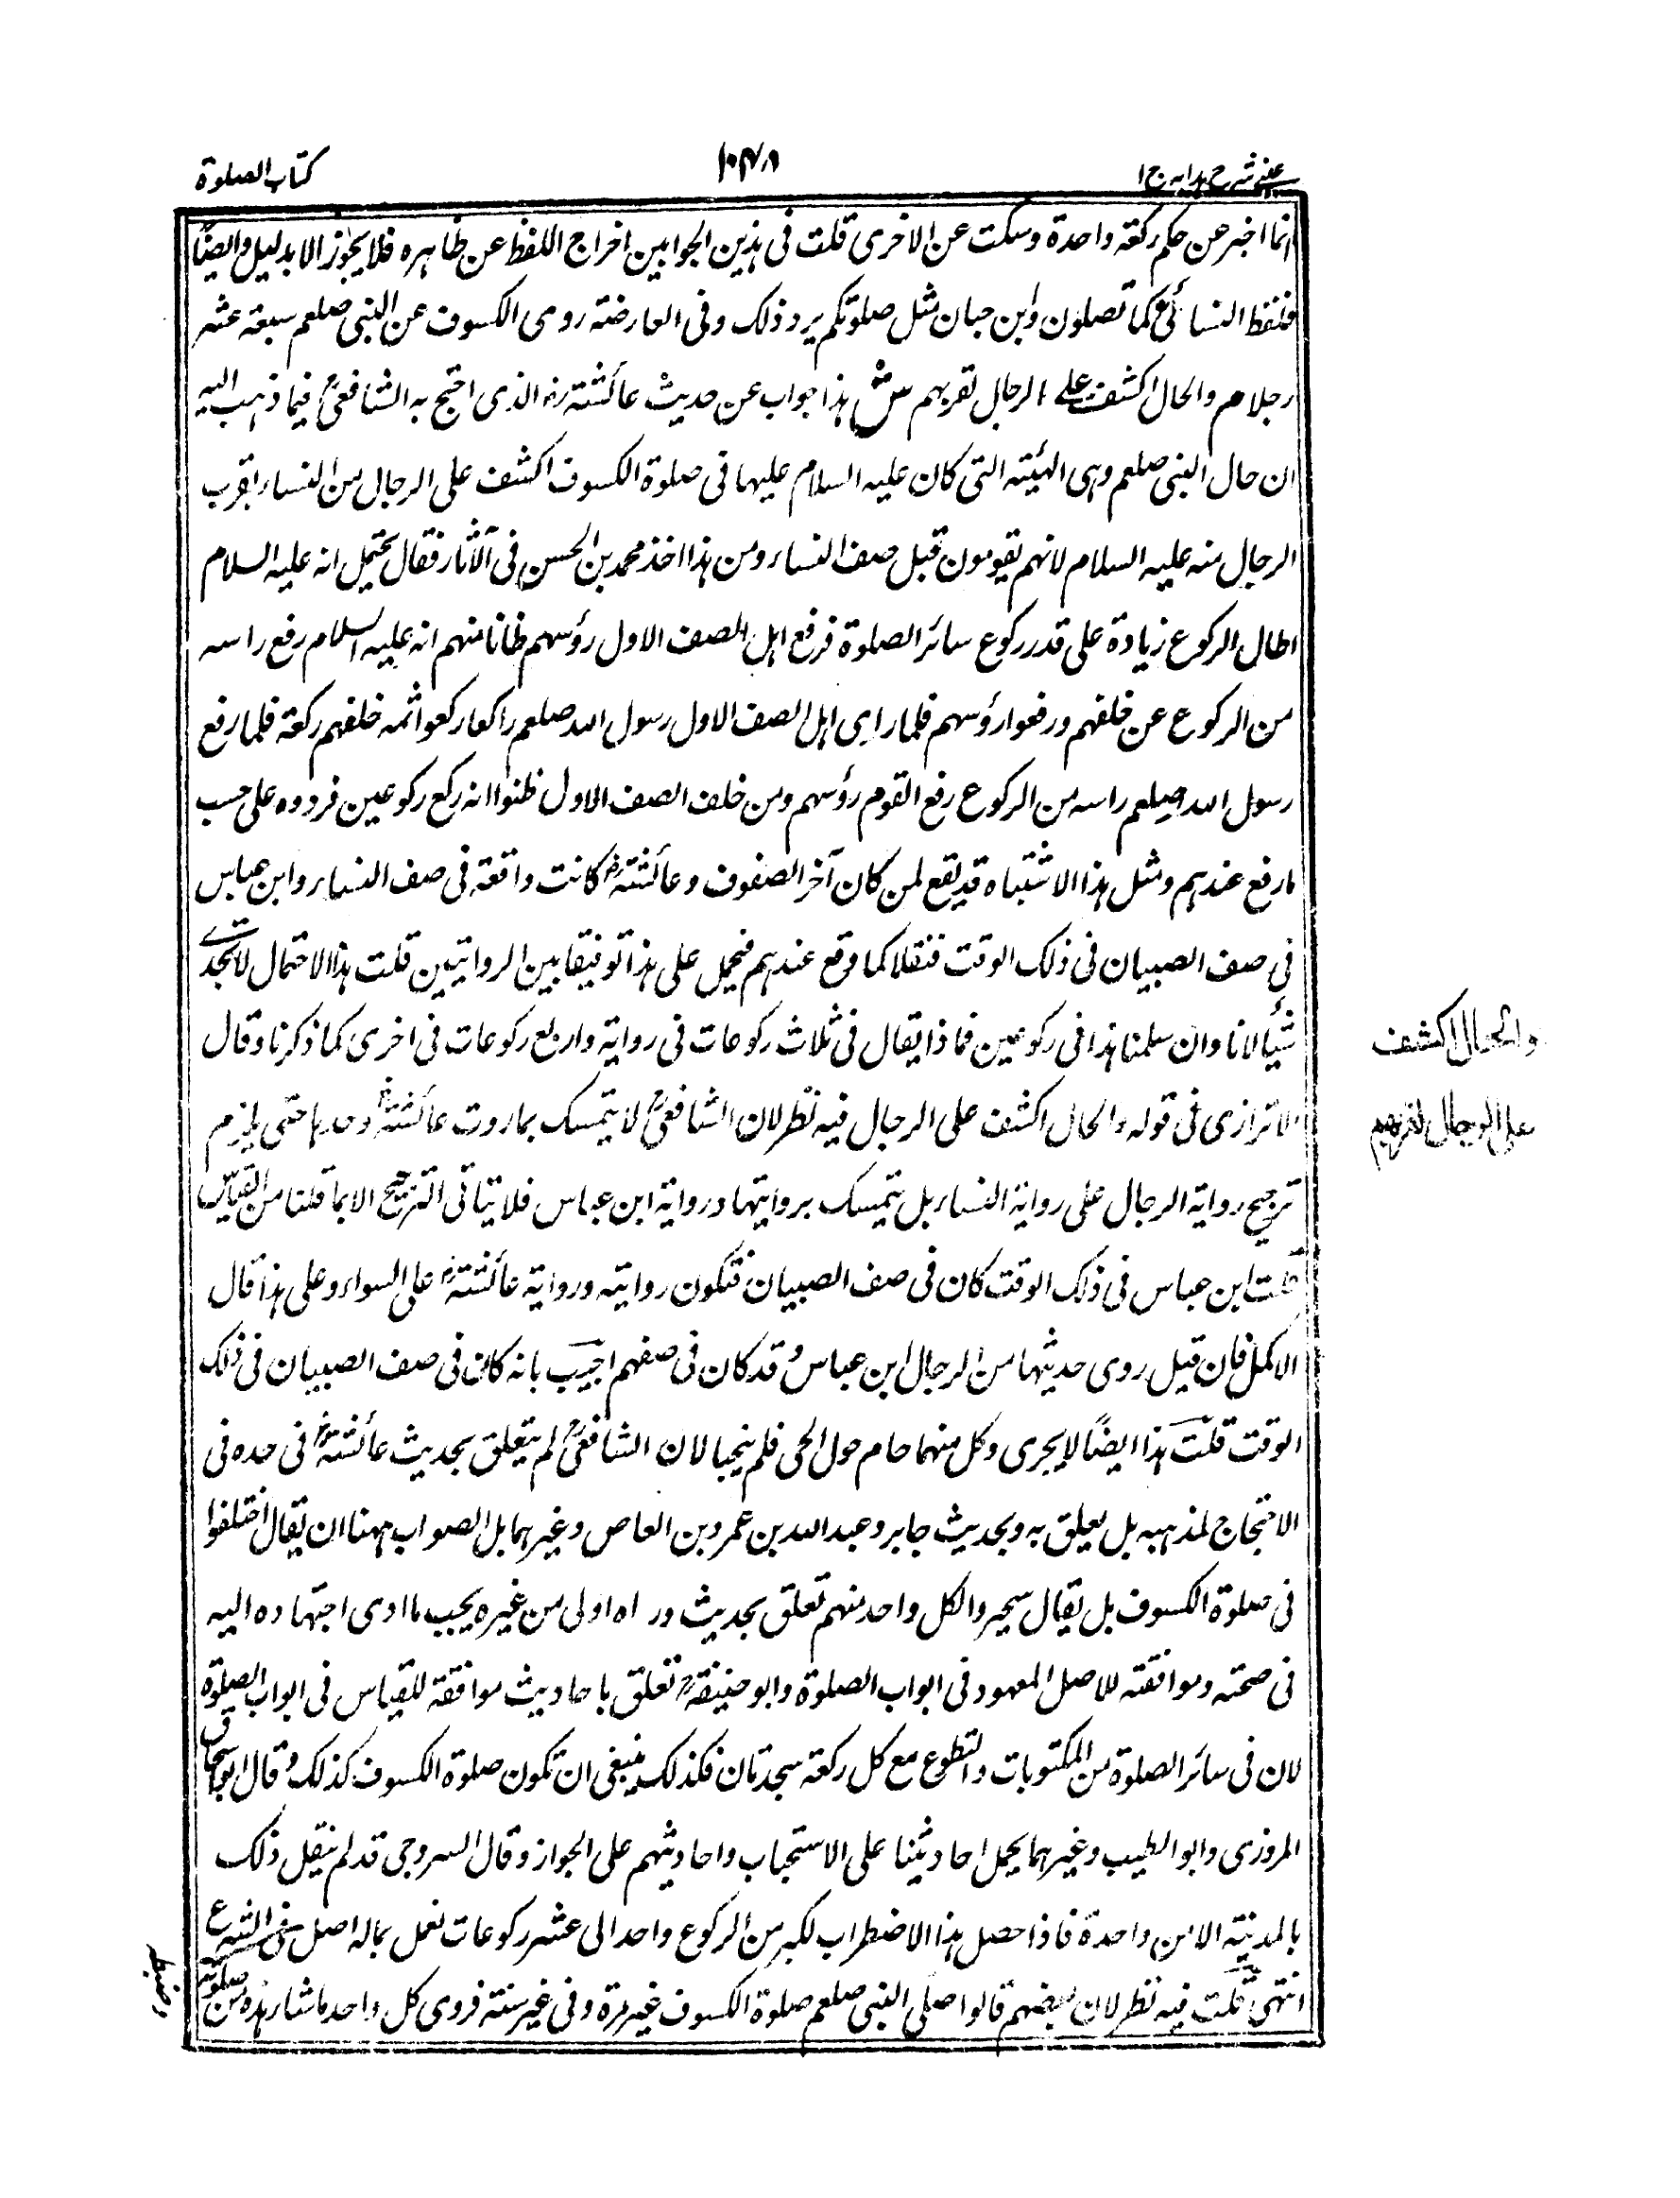 عینی شرح ہدایہ ج ۱
۱۰۴۸
كتاب الصلوة
انما اخبر عن حكم ركعة واحدة وسكت عن الاخرى قلت فى هذين الجوابين اخراج اللفظ عن ظاهره فلا يجوز الا بدليل وايضًا
فلفظ النسائى كما تصلون وابن حبان مثل صلوتكم يرد ذلك وفى العارضة روى الكسوف عن النبى صلعم سبعة عشر
رجلا م والحال اكشف على الرجال لقربهم ش هذا جواب عن حديث عائشةرض الذى احتج به الشافعىرح فيما ذهب اليه
ان حال النبى صلعم وهى الهيئة التى كان عليه السلام عليها فى صلوة الكسوف اكشف على الرجال من النساء لقرب
الرجال منه عليه السلام لانهم يقومون قبل صف النساء ومن هذا اخذ محمد بن الحسن فى الآثار فقال يحتمل انه عليه السلام
اطال الركوع زيادة على قدر ركوع سائر الصلوة فرفع اهل الصف الاول رؤسهم ظانا منهم انه عليه السلام رفع راسه
من الركوع عن خلفهم ورفعوا رؤسهم فلما راى اهل الصف الاول رسول الله صلعم راكعا ركعوا ثمه خلفهم ركعة فلما رفع
رسول الله صلعم راسه من الركوع رفع القوم رؤسهم ومن خلف الصف الاول ظنوا انه ركع ركوعين فردوه على حسب
ما رفع عندهم ومثل هذا الاشتباه قد يقع لمن كان آخر الصفوف وعائشةرض كانت واقعة فى صف النساء وابن عباس
فى صف الصبيان فى ذلك الوقت فنقلا كما وقع عندهم فيحمل على هذا توفيقا بين الروايتين قلت هذا الاحتمال لا يجدى
شيأ لانا وان سلمنا هذا فى ركوعين فماذا يقال فى ثلاث ركوعات فى رواية واربع ركوعات فى اخرى كما ذكرنا وقال
الاترازى فى قوله والحال اكشف على الرجال فيه نظر لان الشافعىرح لا يتمسك بما روت عائشةرض وحدها حتى يلزم
ترجيح رواية الرجال على رواية النساء بل يتمسك بروايتها ورواية ابن عباس فلا يتاتى الترجيح الا بما قلنا من القياس
قلت ابن عباس فى ذلك الوقت كان فى صف الصبيان فتكون روايته ورواية عائشةرض على السواء وعلى هذا قال
الاكمل فان قيل روى حديثها من الرجال ابن عباس وقد كان فى صفهم اجيب بانه كان فى صف الصبيان فى ذلك
الوقت قلت هذا ايضًا لا يجرى وكل منهما حام حول الحمى فلم ينجيا لان الشافعىرح لم يتعلق بحديث عائشةرض فى حده فى
الاحتجاج لمذهبه بل يعلق به وبحديث جابر وعبد الله بن عمرو بن العاص وغيرهما بل الصواب ههنا ان يقال اختلفوا
فى صلوة الكسوف بل يقال سحيروا لكل واحد منهم تعلق بحديث وراه اولى من غيره يجب ما ادى اجتهاده اليه
فى صحته وموافقته للاصل المعهود فى ابواب الصلوة وابو حنيفةرح تعلق باحاديث موافقة للقياس فى ابواب الصلوة
لان فى سائر الصلوة من المكتوبات والتطوع مع كل ركعة سجدتان فكذلك ينبغى ان تكون صلوة الكسوف كذلك وقال ابو اسحاق
المروزى وابو الطيب وغيرهما يحمل احاديثنا على الاستحباب واحاديثهم على الجواز وقال السروجى قد لم ينقل ذلك
بالمدينة الا من واحدة فاذا حصل هذا الاضطراب لكبر من الركوع واحد الى عشر ركوعات نعمل بما له اصل فى الشرع
انتهى قلت فيه نظر لان بعضهم قالوا صلى النبى صلعم صلوة الكسوف غير مرة وفى غير سنة فروى كل واحد ما شاهده من صلوته
وضبط
والحال اكشف
على الرجال لقربهم